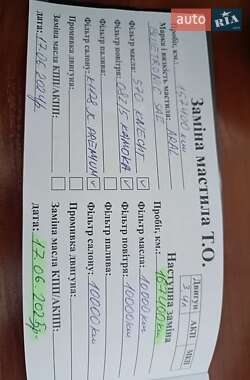 AUTO
RIA
.com
Заміна мастила Т.О.
Двигун АКП МКП
Пробіг, км.: 157400 км
Марка і вязкість мастила: ARAL
Фільтр масла: KNECHT
Фільтр повітря: KAMOKA
Фільтр палива:
Фільтр салону: PREMIUM
Промивка двигуна:
Заміна мастила КПП/АКПП:
дата: 17.06.2024р.
Наступна заміна
Пробіг, км.: 167400 км
Фільтр масла: 10000 км
Фільтр повітря: 10000 км
Фільтр палива:
Фільтр салону: 10000 км
Промивка двигуна:
Заміна мастила КПП/АКПП:
дата: 17.06.2025р.